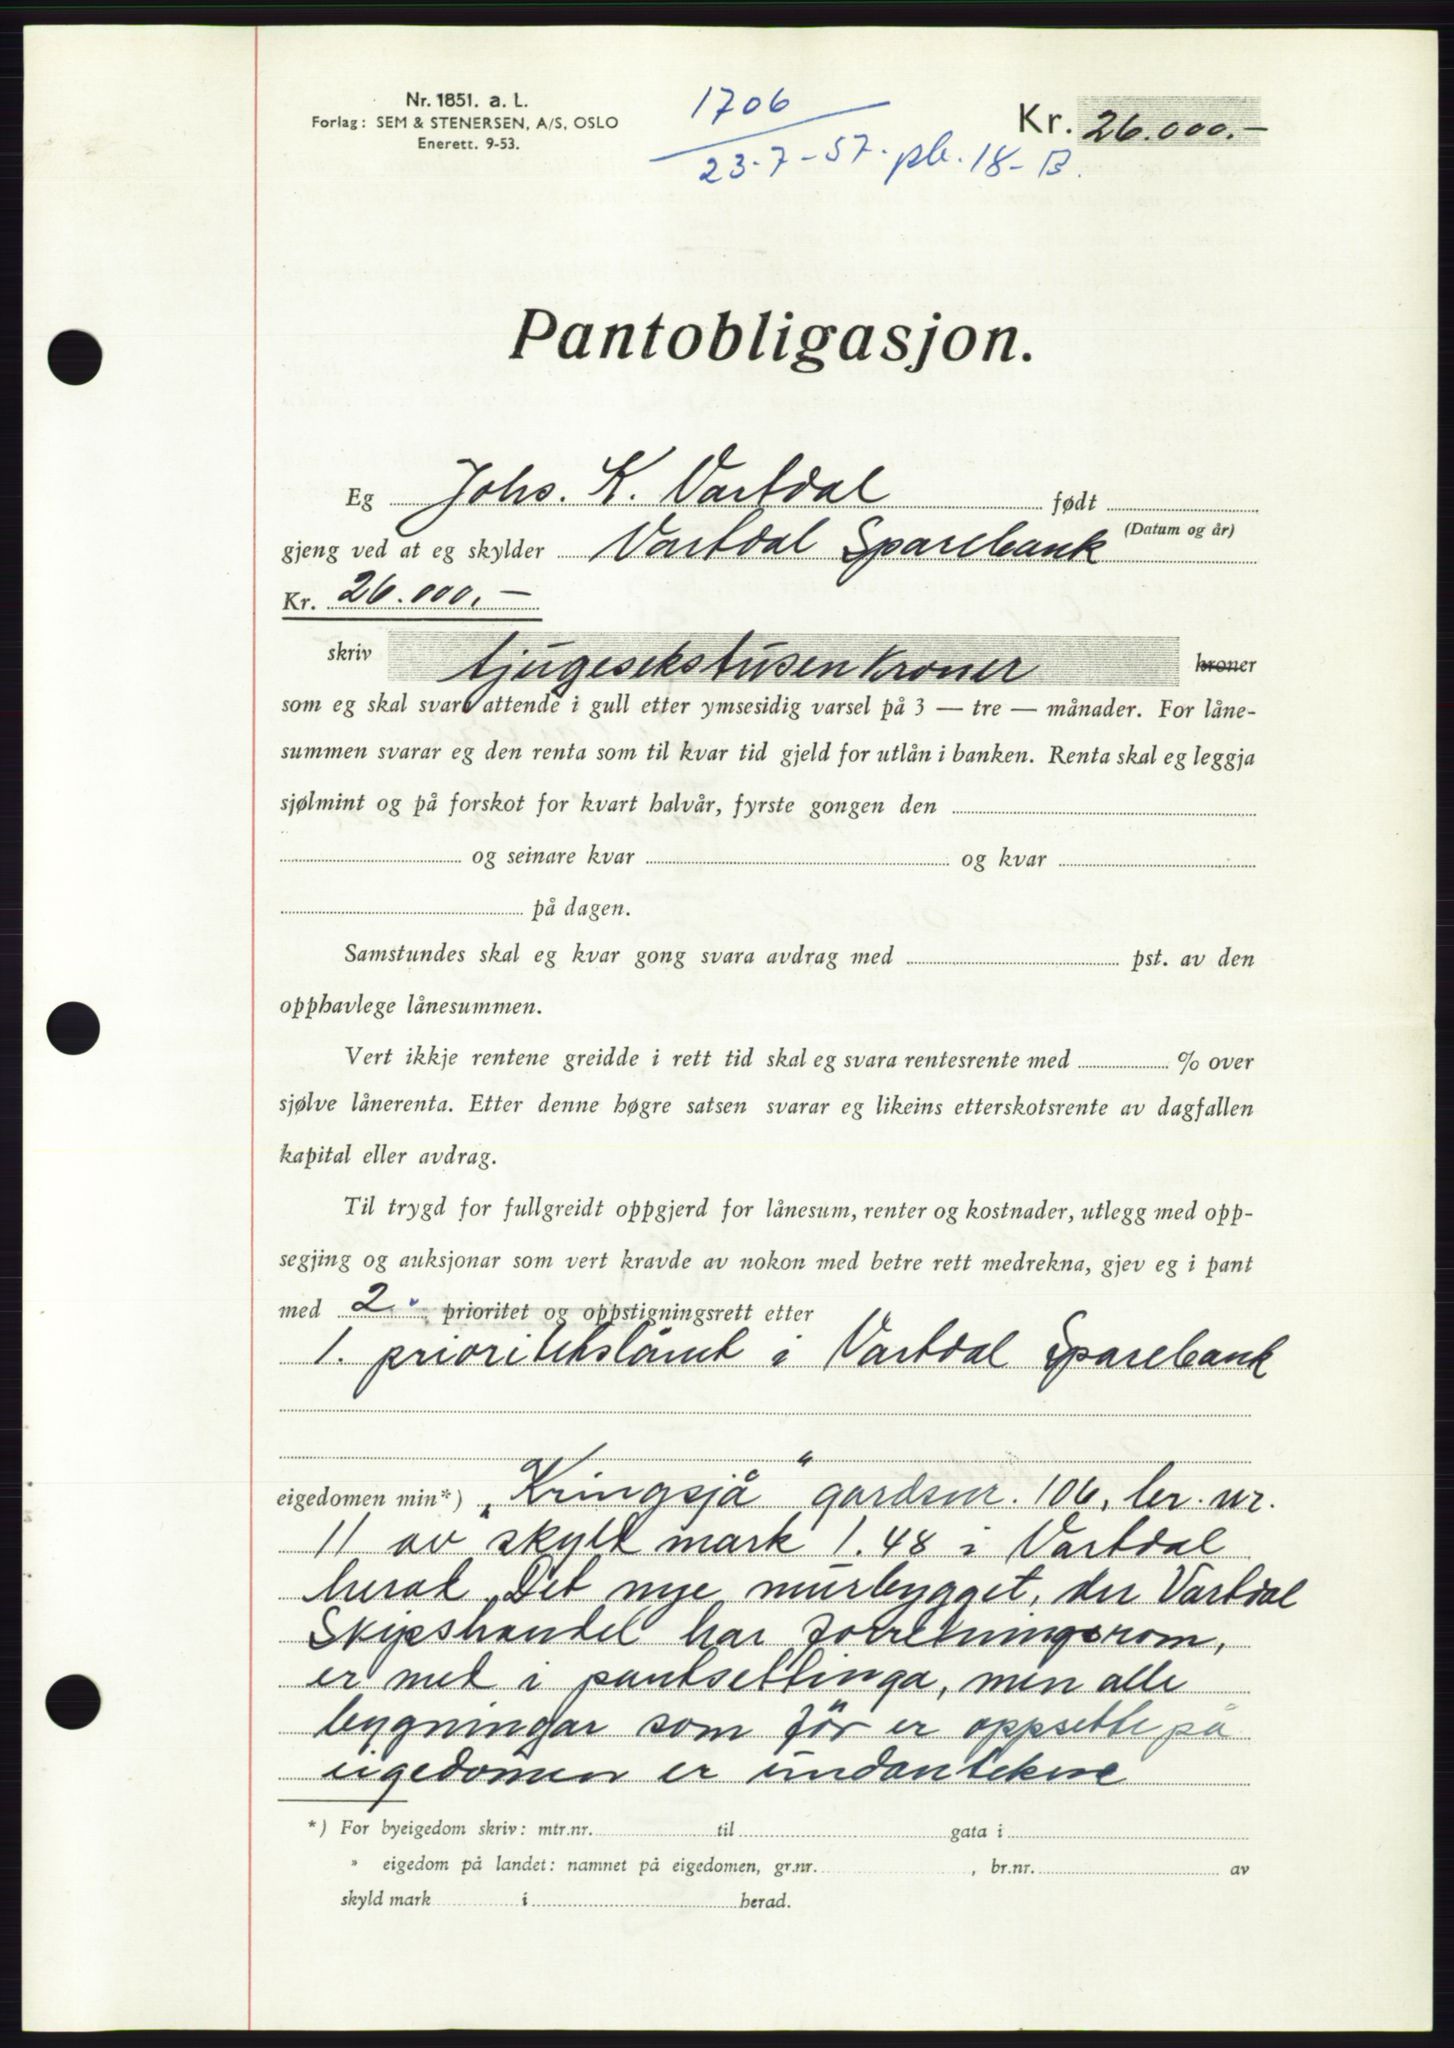 Nr. 1851. a. L.
Forlag: SEM & STENERSEN, A/S, OSLO
Enerett. 9-53.
1706
23-7-57. pb. 18-B.
Kr. 26.000.-
Pantobligasjon.
Eg Johs. K. Vartdal født
(Datum og år)
gjeng ved at eg skylder Vartdal Sparebank
Kr. 26.000.-
skriv tjugesekstusen kroner kroner
som eg skal svara attende i gull etter ymsesidig varsel på 3 — tre — månader. For låne-
summen svarar eg den renta som til kvar tid gjeld for utlån i banken. Renta skal eg leggja
sjølmint og på forskot for kvart halvår, fyrste gongen den
og seinare kvar og kvar
på dagen.
Samstundes skal eg kvar gong svara avdrag med pst. av den
opphavlege lånesummen.
Vert ikkje rentene greidde i rett tid skal eg svara rentesrente med % over
sjølve lånerenta. Etter denne høgre satsen svarar eg likeins etterskotsrente av dagfallen
kapital eller avdrag.
Til trygd for fullgreidt oppgjerd for lånesum, renter og kostnader, utlegg med opp-
segjing og auksjonar som vert kravde av nokon med betre rett medrekna, gjev eg i pant
med 2. prioritet og oppstigningsrett etter
1. prioritetslånet i Vartdal Sparebank
eigedomen min*) „Kringsjå“ gardsnr. 106, br. nr.
11 av skyld mark 1.48 i Vartdal
herad. Det nye murbygget, der Vartdal
Skipshandel har forretningsrom,
er med i pantsettinga, men alle
bygningar som før er oppsette på
eigedomen er undantekne
*) For byeigedom skriv: mtr.nr. til gata i
" eigedom på landet: namnet på eigedomen, gr.nr. , br.nr. av
skyld mark i herad.